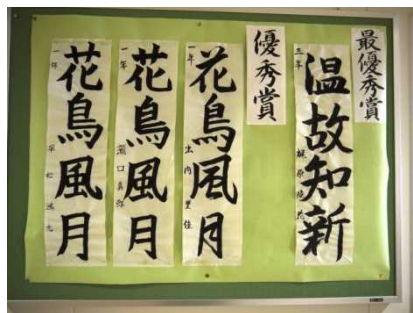 最優秀賞
温故知新
三年
優秀賞
花鳥風月
一年
花鳥風月
一年
花鳥風月
一年